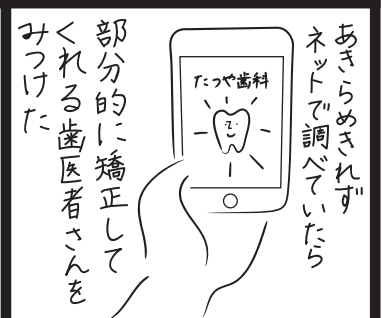 あきらめきれず
ネットで調べていたら
たつや歯科
部分的に矯正して
くれる歯医者さんを
みつけた